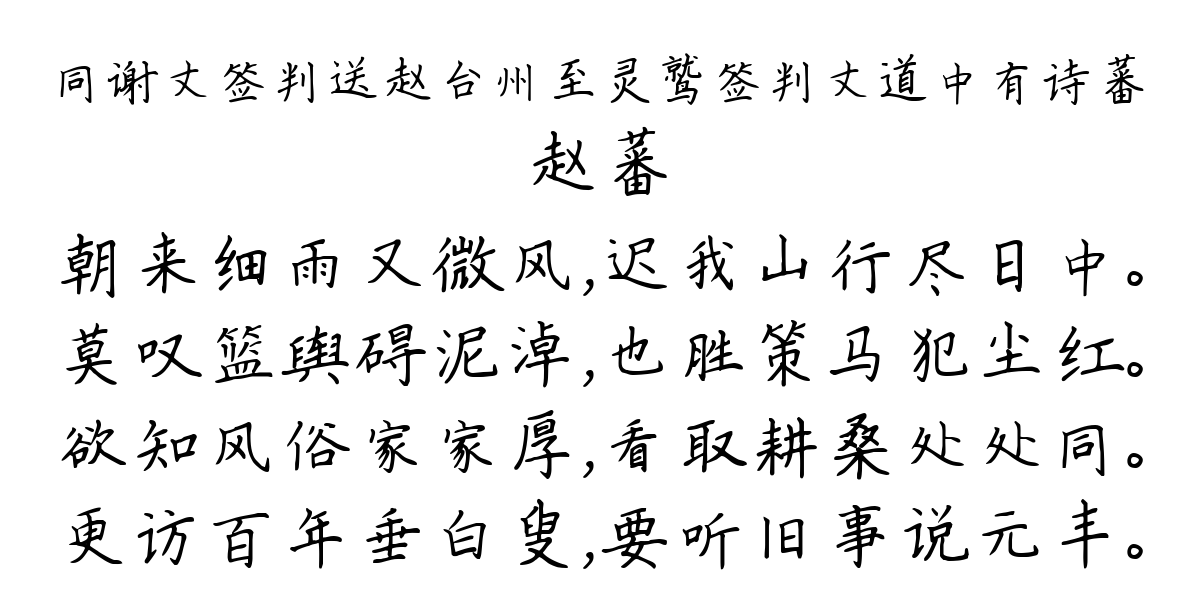 同谢丈签判送赵台州至灵鹫签判丈道中有诗蕃
赵蕃
朝来细雨又微风,迟我山行尽日中。
莫叹篮舆碍泥淖,也胜策马犯尘红。
欲知风俗家家厚,看取耕桑处处同。
更访百年垂白叟,要听旧事说元丰。